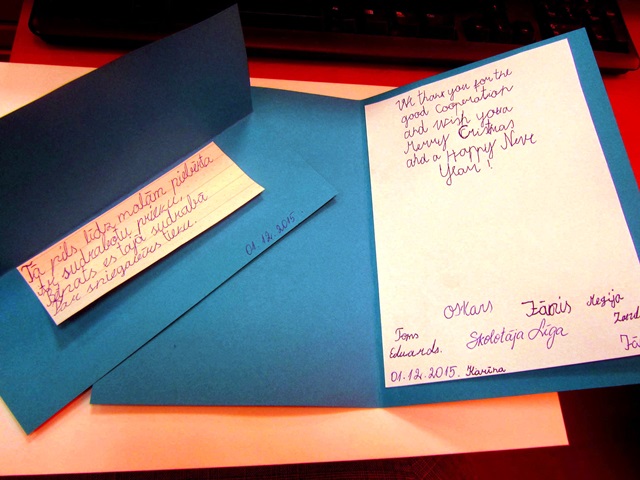 Tā pils, līdz malām piebērta
Ir sudrabotu prieku,
Pats es tajā sudrabā
Par sniegavīru tieku.
01.12.2015
We thank you for the
good cooperation
and wish you a
Merry Cristmas
and a Happy New
Year!
Oskars Jānis Megija
Toms
Eduards. Skolotāja Līga
01.12.2015. Karīna